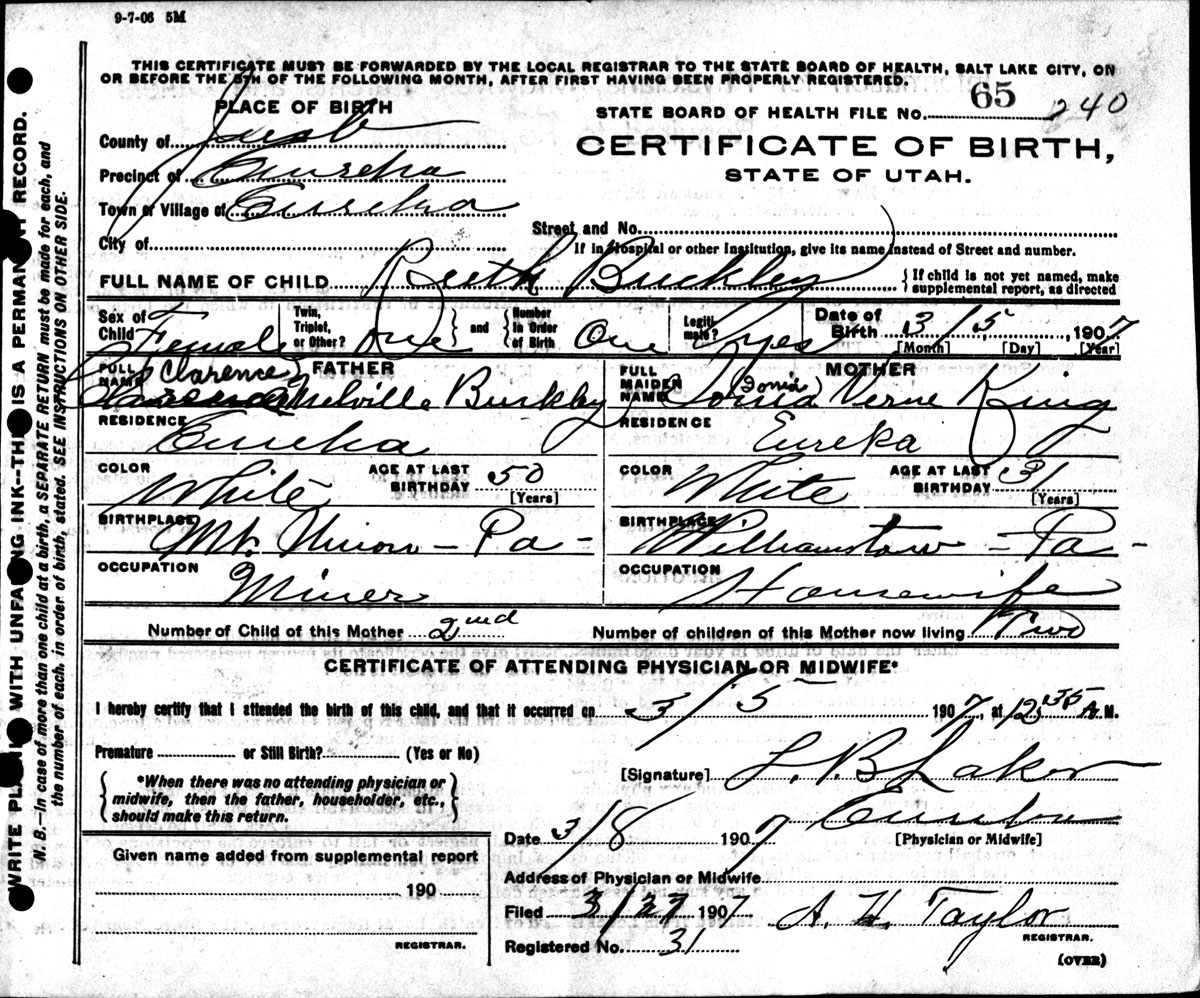 9-7-06 5M
THIS CERTIFICATE MUST BE FORWARDED BY THE LOCAL REGISTRAR TO THE STATE BOARD OF HEALTH, SALT LAKE CITY, ON
OR BEFORE THE 5TH OF THE FOLLOWING MONTH, AFTER FIRST HAVING BEEN PROPERLY REGISTERED.
PLACE OF BIRTH
County of Juab
Precinct of Eureka
Town or Village of Eureka
City of
STATE BOARD OF HEALTH FILE No. 65 240
CERTIFICATE OF BIRTH,
STATE OF UTAH.
Street and No.
If in Hospital or other Institution, give its name instead of Street and number.
FULL NAME OF CHILD Ruth Buckley
{ If child is not yet named, make
supplemental report, as directed
Sex of Child Female
Twin, Triplet, or Other? One } and { Number in Order of Birth One
Legitimate? yes
Date of Birth 3/5, 1907
[Month] [Day] [Year]
FATHER
FULL NAME Clarence Melville Buckley
RESIDENCE Eureka
COLOR White
AGE AT LAST BIRTHDAY 50 [Years]
BIRTHPLACE Mt. Union - Pa -
OCCUPATION Miner
MOTHER
FULL MAIDEN NAME (Sonia) Verne King
RESIDENCE Eureka
COLOR White
AGE AT LAST BIRTHDAY 31 [Years]
BIRTHPLACE Williamstown - Pa -
OCCUPATION Housewife
Number of Child of this Mother 2nd
Number of children of this Mother now living Two
CERTIFICATE OF ATTENDING PHYSICIAN OR MIDWIFE*
I hereby certify that I attended the birth of this child, and that it occurred on 3/5 1907, at 12:35 A M.
Premature or Still Birth? (Yes or No)
{ *When there was no attending physician or
midwife, then the father, householder, etc.,
should make this return. }
[Signature] L. P. Laker
Eureka
[Physician or Midwife]
Date 3/8 1907
Address of Physician or Midwife
Given name added from supplemental report
190
REGISTRAR.
Filed 3/27 1907 A. H. Taylor
REGISTRAR.
Registered No. 31
(OVER)
WRITE PLAINLY WITH UNFADING INK--THIS IS A PERMANENT RECORD.
N. B.—In case of more than one child at a birth, a SEPARATE RETURN must be made for each, and
the number of each, in order of birth, stated. SEE INSTRUCTIONS ON OTHER SIDE.